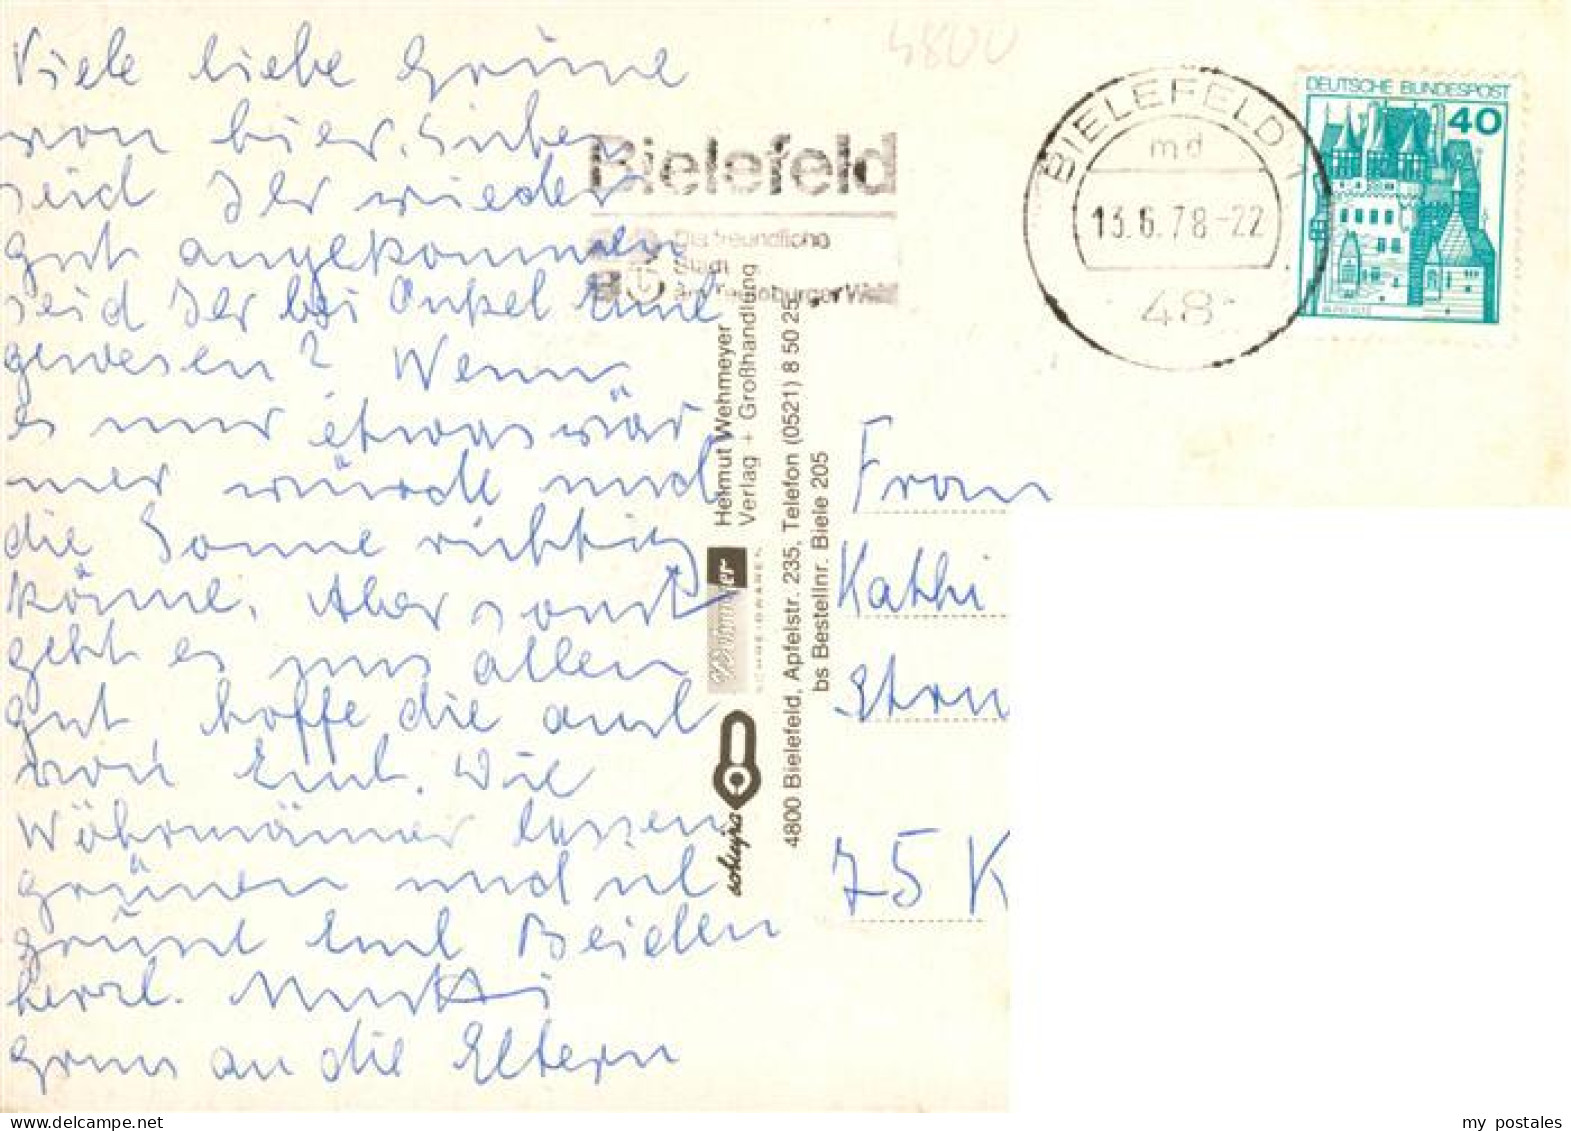 Viele liebe Grüße
von hier. Lieben
seid Ihr wieder
gut angekommen
seid Ihr bei Onkel
gewesen? Wenn
es nur etwas wär
mer würde und
die Sonne richtig
käme. Aber sonst
geht es uns allen
gut hoffe die auch
von Euch. Die
Wöhrmänner lassen
grüßen und ich
grüße Euch Beiden
herzl. Mutti
Gruss an die Eltern
4800
Bielefeld
Die freundliche
Stadt
am Teutoburger Wald
BIELEFELD 1
md
13.6.78-22
48
DEUTSCHE BUNDESPOST
40
BURG ELTZ
Helmut Wehmeyer
Verlag + Großhandlung
4800 Bielefeld, Apfelstr. 235, Telefon (0521) 8 50 25
bs Bestellnr. Biele 205
Wehmeyer
SCHREIBWAREN
Frau
Kathi
75 K
my postales